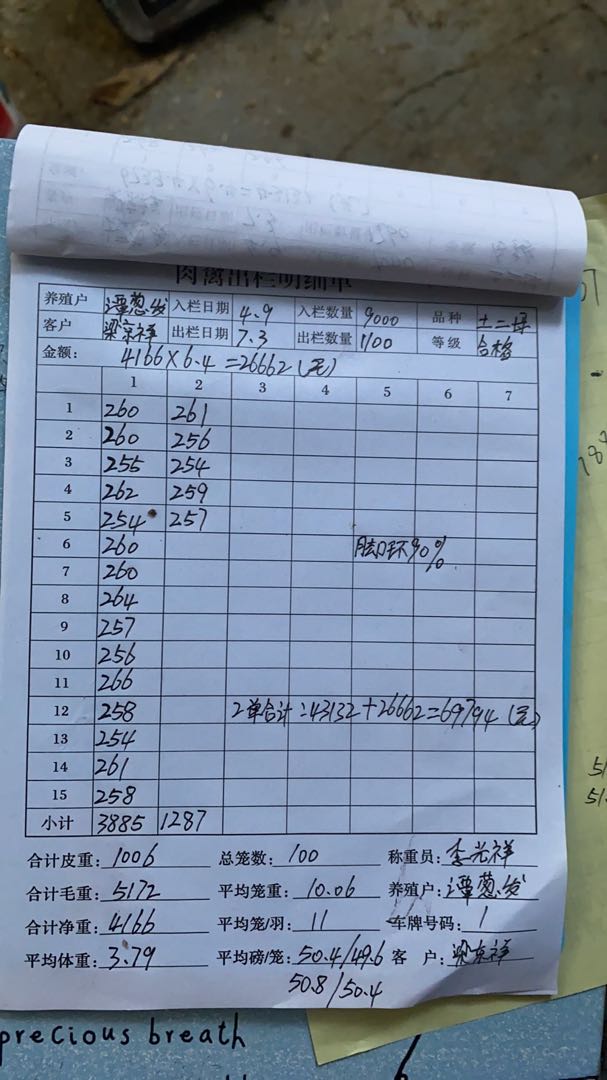 肉禽出栏明细单
养殖户 谭葱发 入栏日期 4.9 入栏数量 9000 品种 土二母
客户 梁京祥 出栏日期 7.3 出栏数量 1100 等级 合格
金额: 4166×6.4=26662(元)
1 2 3 4 5 6 7
1 260 261
2 260 256
3 255 254
4 262 259
5 254 257
6 260 脚环90%
7 260
8 264
9 257
10 256
11 266
12 258 2单合计:43132+26662=69794(元)
13 254
14 261
15 258
小计 3885 1287
合计皮重: 1006 总笼数: 100 称重员: 李光祥
合计毛重: 5172 平均笼重: 10.06 养殖户: 谭葱发
合计净重: 4166 平均笼/羽: 11 车牌号码: 1
平均体重: 3.79 平均磅/笼: 50.4/49.6 客 户: 梁京祥
50.8/50.4
precious breath